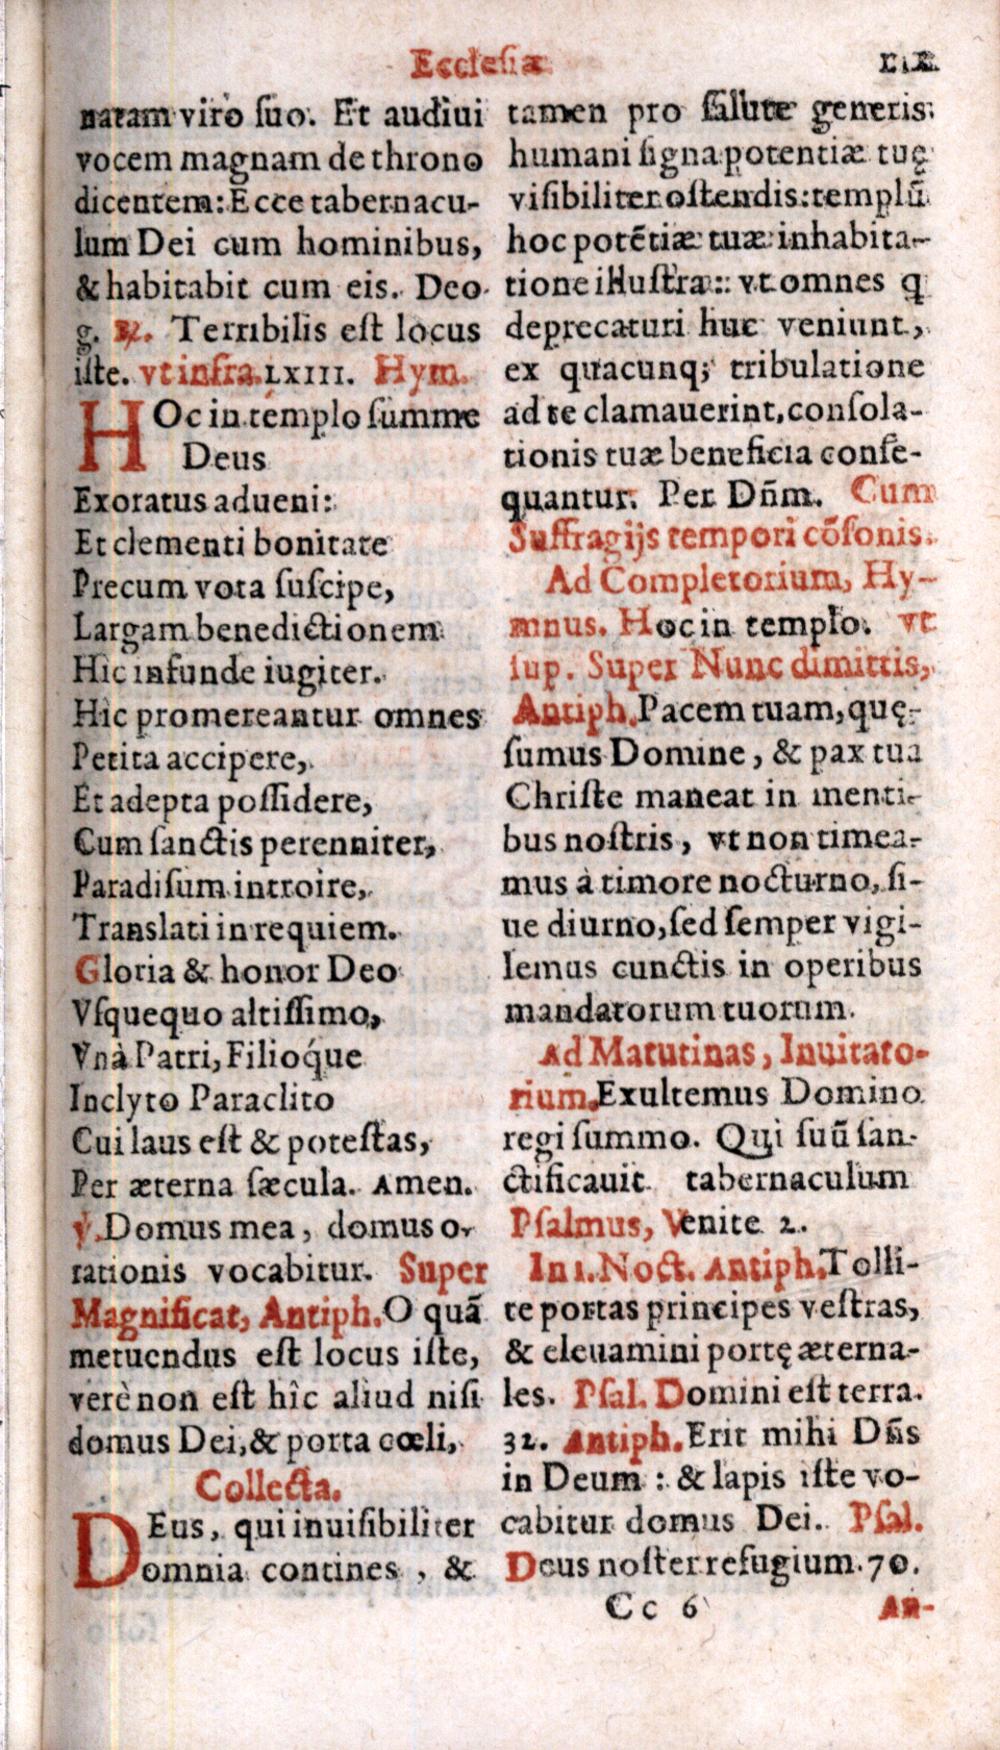 Ecclesiæ
natam viro ſuo. Et audiui
vocem magnam de throno
dicentem: Ecce tabernacu-
lum Dei cum hominibus,
& habitabit cum eis. Deo
g. ℟. Terribilis eſt locus
iſte. vt infra. LXIII. Hym.
HOc in témplo ſumme
Deus
Exoratus adueni:
Et clementi bonitate
Precum vota ſuſcipe,
Largam benedictionem
Hic infunde iugiter.
Hic promereantur omnes
Petita accipere,
Et adepta poſſidere,
Cum ſanctis perenniter,
Paradiſum introire,
Translati in requiem.
Gloria & honor Deo
Vſquequo altiſſimo,
Vnà Patri, Filioq́ue
Inclyto Paraclito
Cui laus eſt & poteſtas,
Per æterna ſæcula. Amen.
℣. Domus mea, domus o-
rationis vocabitur. Super
Magnificat, Antiph. O quã
metuendus eſt locus iſte,
verè non eſt hîc aliud niſi
domus Dei, & porta cœli,
Collecta.
DEus, qui inuiſibiliter
omnia contines, &
tamen pro ſalute generis
humani ſigna potentiæ tuę
viſibiliter oſtendis: templũ
hoc potẽtiæ tuæ inhabita-
tione illuſtra: vt omnes q
deprecaturi huc veniunt,
ex quacunq; tribulatione
ad te clamauerint, conſola-
tionis tuæ beneficia conſe-
quantur. Per Dñm. Cum
Suffragijs tempori cõſonis.
Ad Completorium, Hy-
mnus. Hoc in templo. vt
ſup. Super Nunc dimittis,
Antiph. Pacem tuam, quę-
ſumus Domine, & pax tua
Chriſte maneat in menti-
bus noſtris, vt non timea-
mus à timore nocturno, ſi-
ue diurno, ſed ſemper vigi-
lemus cunctis in operibus
mandatorum tuorum.
Ad Matutinas, Inuitato-
rium. Exultemus Domino
regi ſummo. Qui ſuũ ſan-
ctificauit tabernaculum
Pſalmus, Venite 2.
In 1. Noct. Antiph. Tolli-
te portas principes veſtras,
& eleuamini portę æterna-
les. Pſal. Domini eſt terra.
32. Antiph. Erit mihi Dñs
in Deum: & lapis iſte vo-
cabitur domus Dei. Pſal.
Deus noſter refugium. 70.
Cc 6 An-